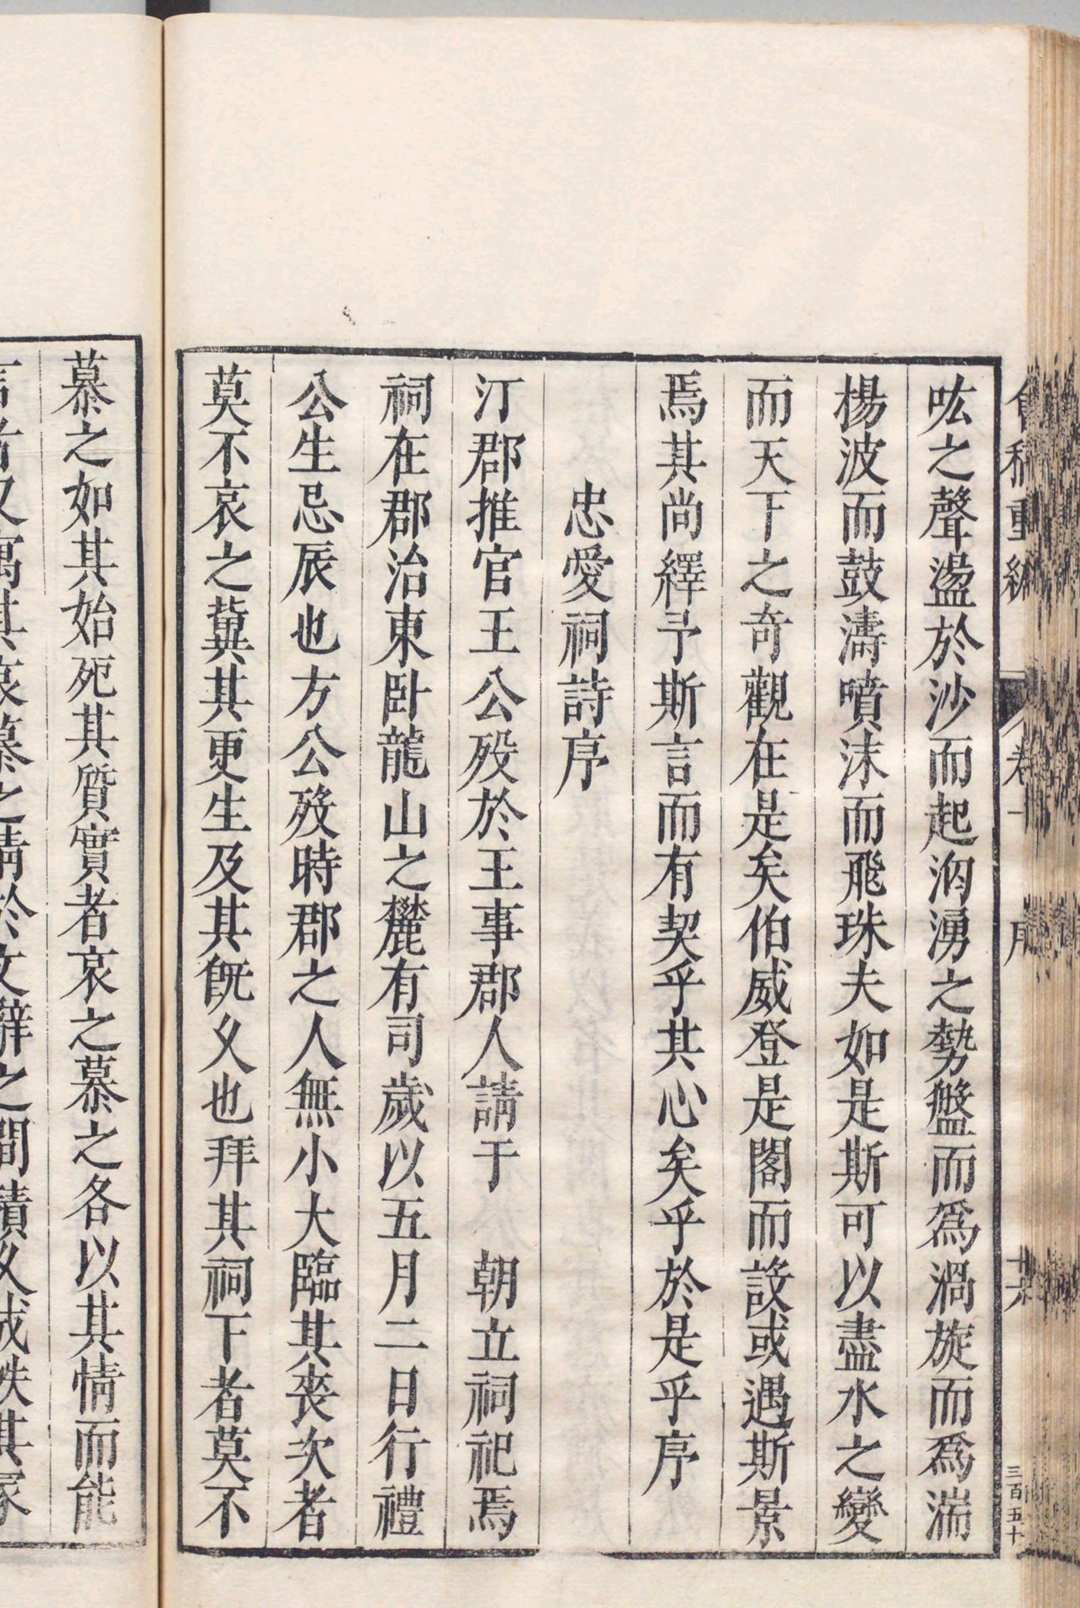 呟之聲盪於沙而起洶湧之勢盤而爲渦旋而爲湍
楊波而鼓濤噴沫而飛珠夫如是斯可以盡水之變
而天下之奇觀在是矣伯威登是閣而設或遇斯景
焉其尚繹予斯言而有契乎其心矣乎於是乎序
忠愛祠詩序
汀郡推官王公歿於王事郡人請于 朝立祠祀焉
祠在郡治東卧龍山之麓有司歲以五月二日行禮
公生忌辰也方公歿時郡之人無小大臨其喪次者
莫不哀之冀其更生及其旣乆也拜其祠下者莫不
慕之如其始死其質實者哀之慕之各以其情而能
言者又寓其哀慕之情於文辭之間積乆成帙其家
三百五十